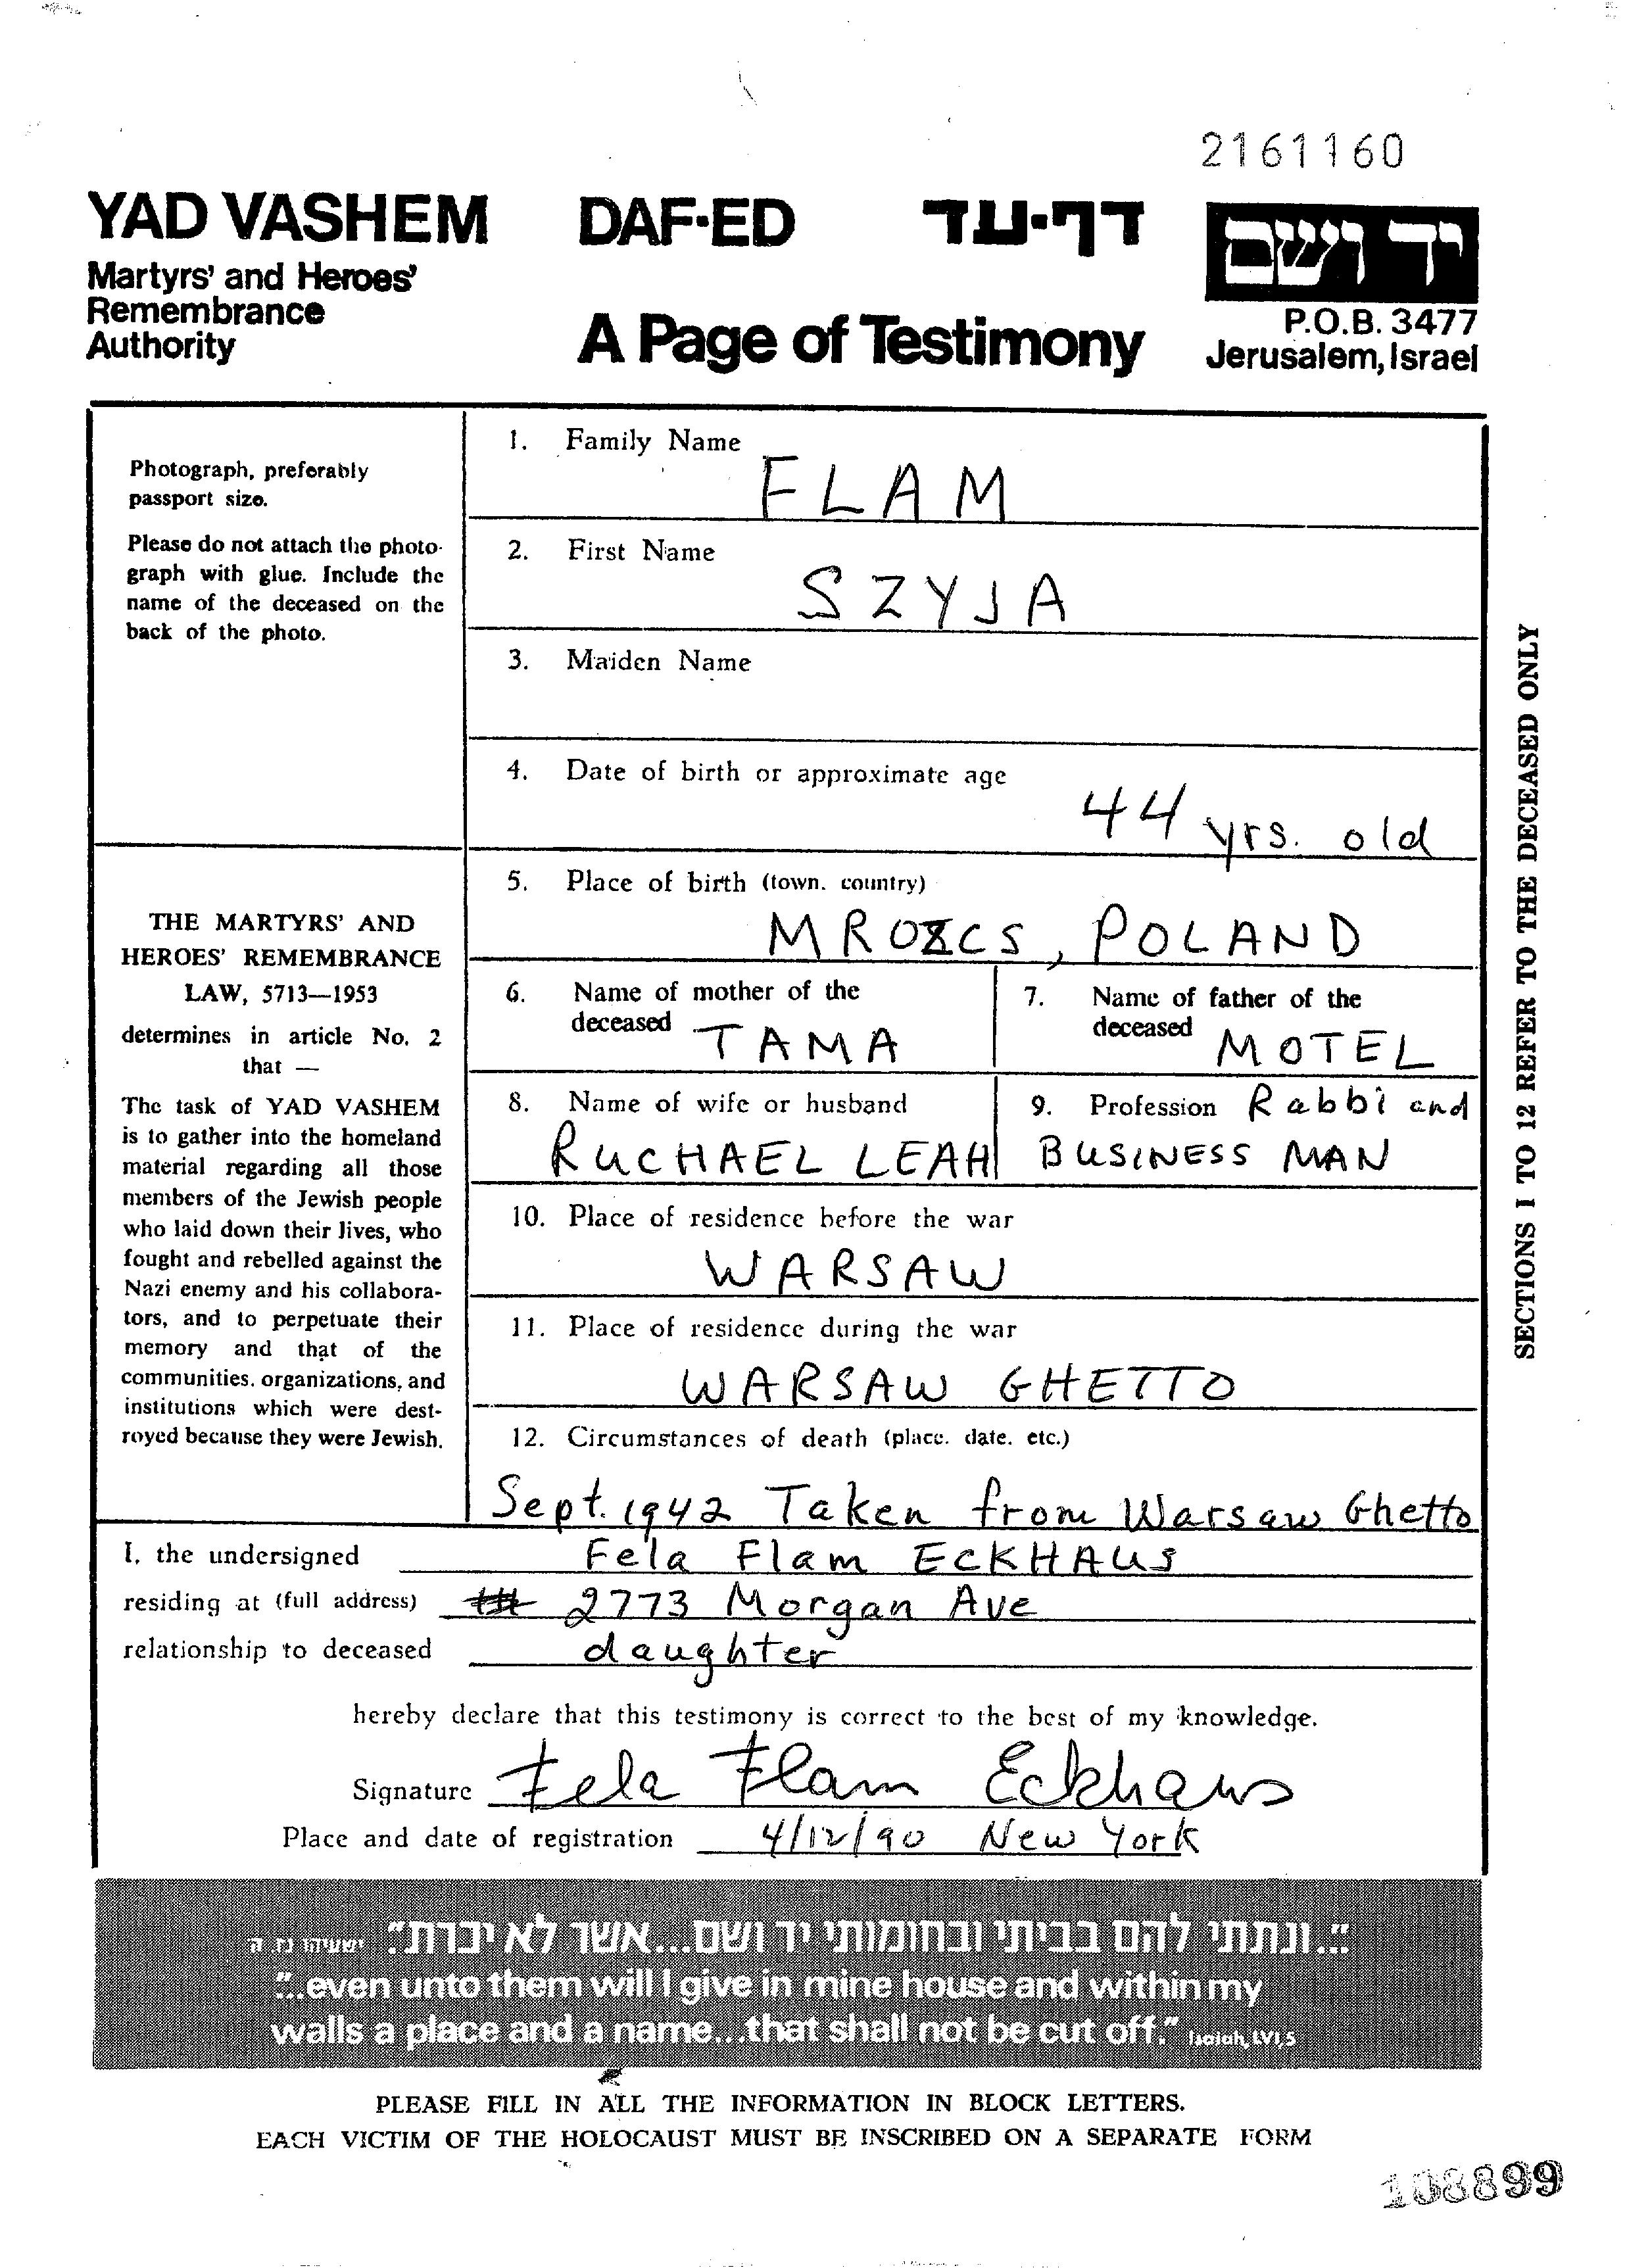 2161160
YAD VASHEM DAF-ED דף-עד יד ושם
Martyrs' and Heroes'
Remembrance
Authority
A Page of Testimony
P.O.B. 3477
Jerusalem, Israel
Photograph, preferably
passport size.
Please do not attach the photo-
graph with glue. Include the
name of the deceased on the
back of the photo.
THE MARTYRS' AND
HEROES' REMEMBRANCE
LAW, 5713—1953
determines in article No. 2
that —
The task of YAD VASHEM
is to gather into the homeland
material regarding all those
members of the Jewish people
who laid down their lives, who
fought and rebelled against the
Nazi enemy and his collabora-
tors, and to perpetuate their
memory and that of the
communities, organizations, and
institutions which were dest-
royed because they were Jewish.
1. Family Name
FLAM
2. First Name
SZYJA
3. Maiden Name
4. Date of birth or approximate age
44 yrs. old
5. Place of birth (town, country)
MROZCS, POLAND
6. Name of mother of the
deceased TAMA
7. Name of father of the
deceased MOTEL
8. Name of wife or husband
RUCHAEL LEAH
9. Profession Rabbi and
BUSINESS MAN
10. Place of residence before the war
WARSAW
11. Place of residence during the war
WARSAW GHETTO
12. Circumstances of death (place, date, etc.)
Sept. 1942 Taken from Warsaw Ghetto
SECTIONS 1 TO 12 REFER TO THE DECEASED ONLY
I, the undersigned Fela Flam ECKHAUS
residing at (full address) 2773 Morgan Ave
relationship to deceased daughter
hereby declare that this testimony is correct to the best of my knowledge.
Signature Fela Flam Eckhaus
Place and date of registration 4/12/90 New York
"...ונתתי להם בביתי ובחומותי יד ושם...אשר לא יכרת." ישעיהו נז, ה
"...even unto them will I give in mine house and within my
walls a place and a name...that shall not be cut off." Isaiah, LVI,5
PLEASE FILL IN ALL THE INFORMATION IN BLOCK LETTERS.
EACH VICTIM OF THE HOLOCAUST MUST BE INSCRIBED ON A SEPARATE FORM
108899